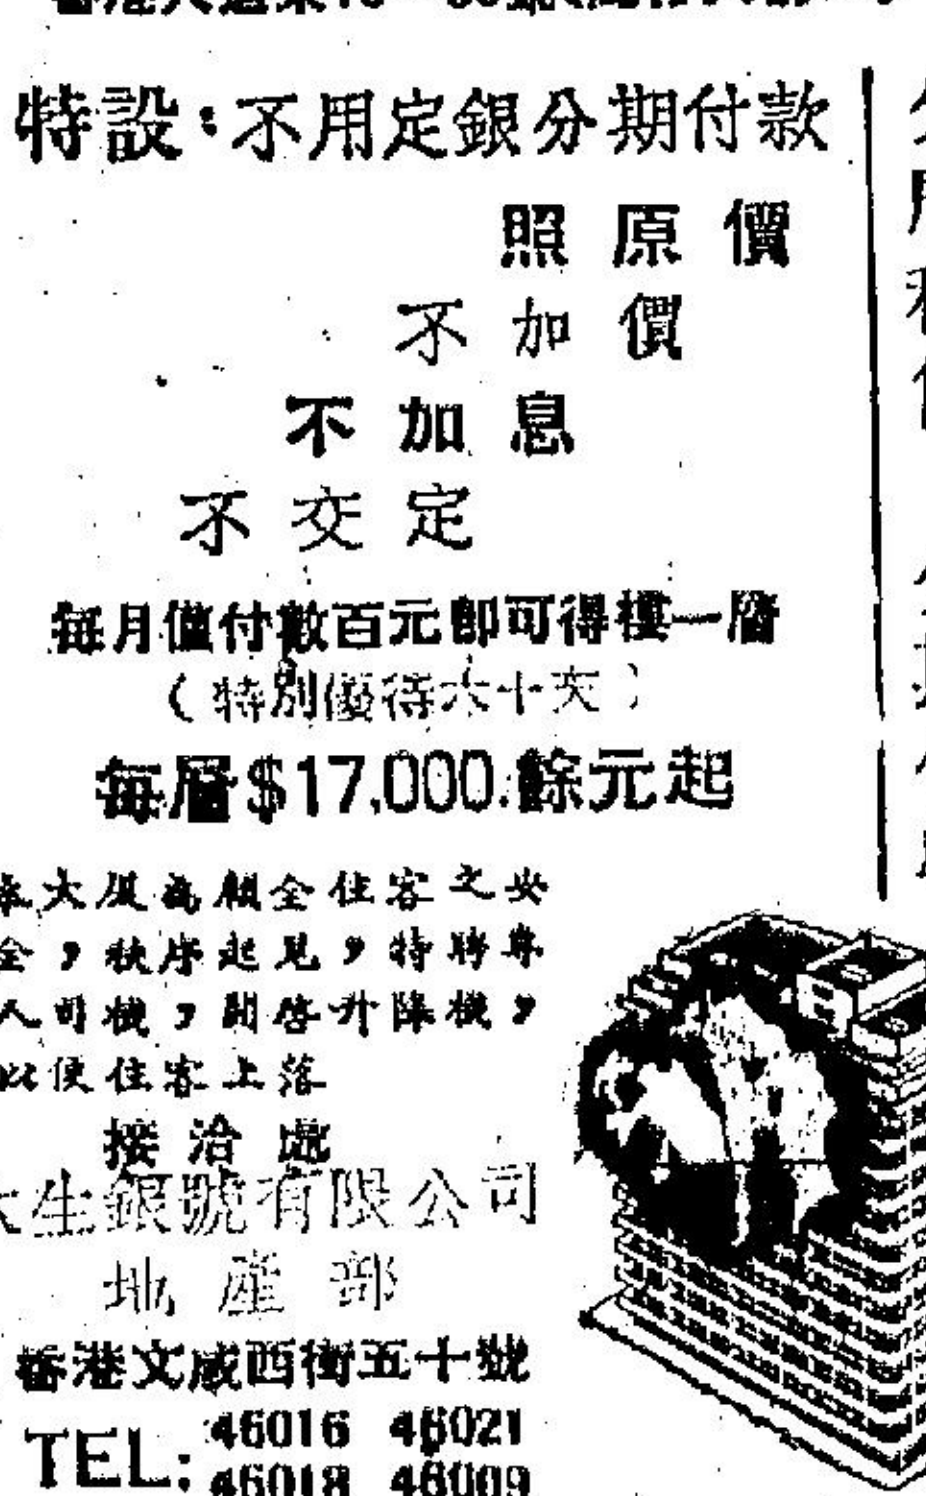 特設：不用定銀分期付款
照原價
不加價
不加息
不交定
每月僅付數百元即可得樓一層
（特別優待六十天）
每層$17,000.餘元起
本大厦為顧全住客之安
全，秩序起見，特聘專
人司機，開啓升降機，
以便住客上落
接洽處
大生銀號有限公司
地產部
香港文咸西街五十號
TEL: 46016 46021
46018 46009